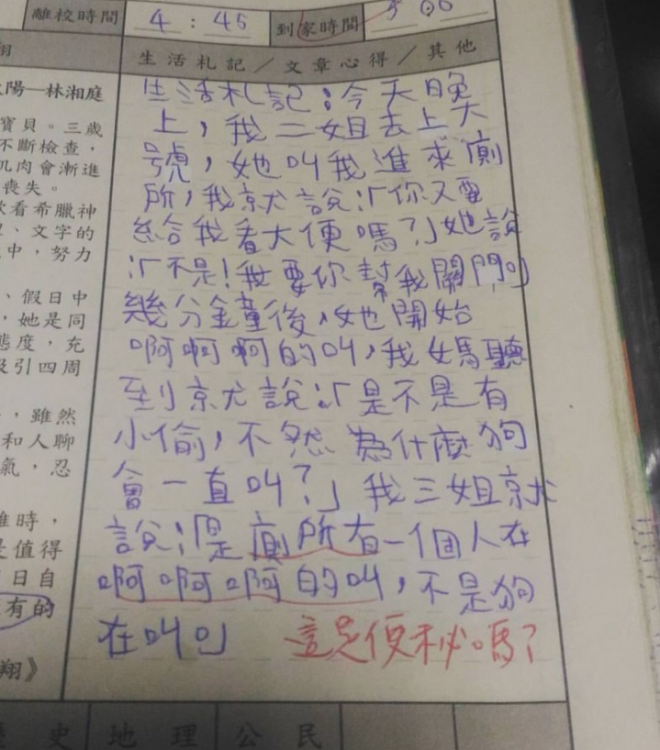 離校時間 4:45 到家時間 5 00
生活札記／文章心得／其他
生活札記：今天晚
上，我二姐去上大
號，她叫我進來廁
所，我就說：「你又要
給我看大便嗎？」她說
：「不是！我要你幫我關門」
幾分鐘後，她開始
啊啊啊的叫，我媽聽
到就說：「是不是有
小偷，不然為什麼狗
會一直叫？」我三姐就
說：「是廁所有一個人在
啊啊啊的叫，不是狗
在叫」 這是便秘嗎？
翔
陽—林湘庭
寶貝。三歲
不斷檢查，
肌肉會漸進
喪失。
看希臘神
、文字的
中，努力
、假日中
，她是同
態度，充
吸引四周
，雖然
和人聊
氣，忍
時，
值得
日自
有的
翔》
史 地理 公民